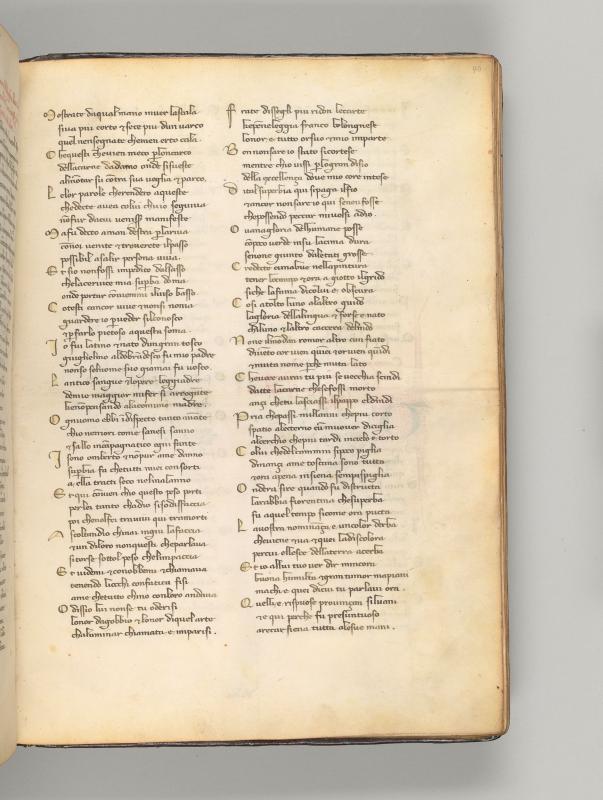 Mostrate daqual mano inver lascala
siva piu corto & sece piu dun varco
quel nensegnate chemen erto cala
Chequesti cheven meco plonearco
dellacarne dadamo onde sisveste
almotar su contra sua voglia e parco.
Lelor parole cherendero aqueste
chedecte avea colui chuio seguiva
nonfur dacui veniss manifeste
Mafu decto aman destra plariva
connoi venite & troverete ilpasso
possibil asalir persona viva.
Et sio nonfossi impedito dalsasso
chelacervice mia superba doma
onde portar conviemmi iluiso basso
Cotesti cancor vive & nonsi noma
guardere io pveder silconosco
& pfarlo pietoso aquesta soma
Io fui latino & nato dungran tosco
guiglielmo aldobrandescho fu mio padre
nonso selnome suo giamai fu vosco.
Lantico sangue & lopere leggiadre
demie maggior mifer si arrogante
chenonpensando alacomune madre
Ognuomo ebbi indispecto tanto avante
chio nemori come sanesi sanno
& sallo incampagnatico ogni fante
Isono omberto & nonpur ame danno
superbia fa chetutti miei consorti
a ella tracti seco nelmalanno
Et qui conven chio questo peso porti
perlei tanto chadio sisodisfaccia
poi chenolfei travivi qui tramorti
Ascoltando chinai ingiu lafaccia
& un diloro nonquesti cheparlava
sitorse sottol peso chelimpaccia
Et videmi & conobbemi & chiamava
tenendo liocchi confatica fisi
ame chetutto chino conloro andava
O dissio lui nonse tu oderisi
lonor dagobbio & lonor diquel arte
chaluminar chiamata e imparisi.
Frate dissegli piu ridon lecarte
chepenelleggia franco bolongnese
lonore e tutto orsuo & mio imparte
Ben nonsare io stato sicortese
mentre chio vissi plogran disio
della eccellenza dove mio core intese
Dital superbia qui sipaga ilfio
& ancor nonsare io qui senonfosse
chepossendo peccar mivolsi adio.
O vanagloria delhumane posse
compoco verde insu lacima dura
senone giunto daletati grosse
Credette cimabue nellapintura
tener locampo & ora a giotto ilgrido
siche lafama dicolui e obscura
Cosi atolto luno alaltro guido
lagloria dellalingua & forse e nato
chiluno & laltro caccera delnido
None ilmondan romor altro cun fiato
divento cor vien quinci & or vien quindi
& muta nome perche muta lato
Chevoce avrai tu piu se vecchia scindi
date lacarne chesefossi morto
anzi chetu lasciassi ilpappo eldindi
Pria chepassi millanni chepiu corto
spatio aleterno chunmuover diceglia
alcerchio chepiu tardi incielo e torto
Colui chedelcammin sipoco piglia
dinanzi ame toscana sono tutto
& ora apena insiena senpispiglia
Ondera sire quando fu distructa
larabbia fiorentina chesuperba
fu aquel tempo sicome ora putta
Lavostra nominanza e uncolor derba
cheviene & va & quei ladiscolora
percui ellesce dellaterra acerba
Et io allui tuo ver dir mincora
buona humilta & gran tumor mapiani
machi e quei dicui tu parlavi ora.
Quelli e rispuose provinzan silvani
& e qui perche fu presuntuoso
arecar siena tutta alesue mani.